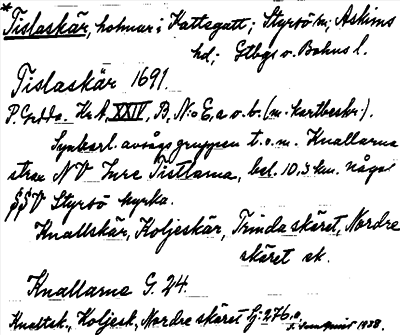 *Tislaskär, holmar i Kattegatt; Styrsö sn; Askims
hd; Gtbgs o. Bohus l.
Tislaskär 1691.
P. Gedda. Kr. A, XXIV, B, N:o E, a o. b. (m. kartbeskr.).
Synbarl. avsågs gruppen t.o.m. Knallarna
strax NV Inre Tistlarna, bel. 10,3 km. något
SSV Styrsö kyrka.
Knallskär, Koljeskär, Trinda skäret, Nordre
skäret sk.
Knallarne G. 24.
Knaltsk., Koljesk., Nordre skäret Gj: 276.
1938.